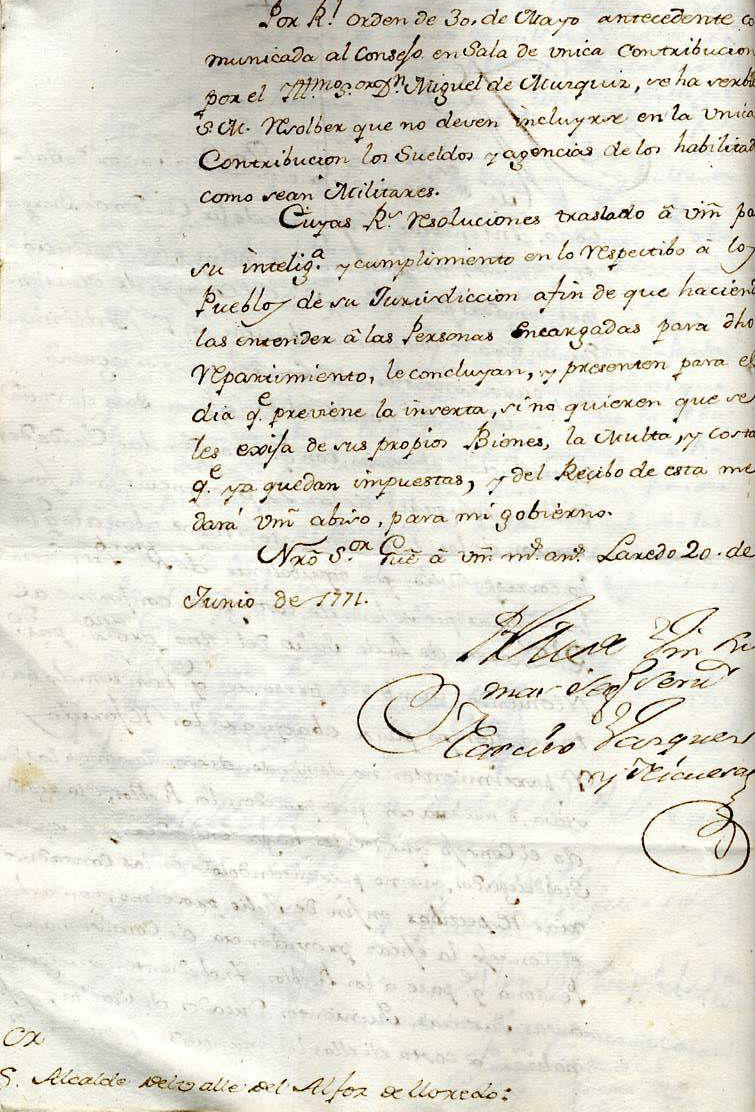 Por Rl. orden de 30. de Mayo antecedente co
municada al Consejo en Sala de unica Contribucion
por el Illmo. S.or Dn. Miguel de Muzquiz, se ha serbi
S. M. resolber que no deven incluyrse en la unica
Contribucion los Sueldos y agencias de los habilitad
como sean Militares.
Cuyas Rs. resoluciones traslado â vm̃ pa
su intelig.a y cumplimiento en lo respectibo â los
Pueblos de su Jurisdiccion afin de que haciend
las entender â las Personas encargadas para dho
repartimiento, le concluyan, y presenten para el
dia q.e previene la inserta, si no quieren que se
les exija de sus propios Bienes, la Multa, y costa
q.e ya quedan impuestas, y del Recibo de esta me
dará vm̃ abiso, para mi gobierno.
Nrõ S.or Gue â vm̃ ms. ans. Laredo 20. de
Junio de 1771.
mas seg.
Narciso Vazquez
y Nicuesa
S. Alcalde del valle del Alfoz de lloredo: